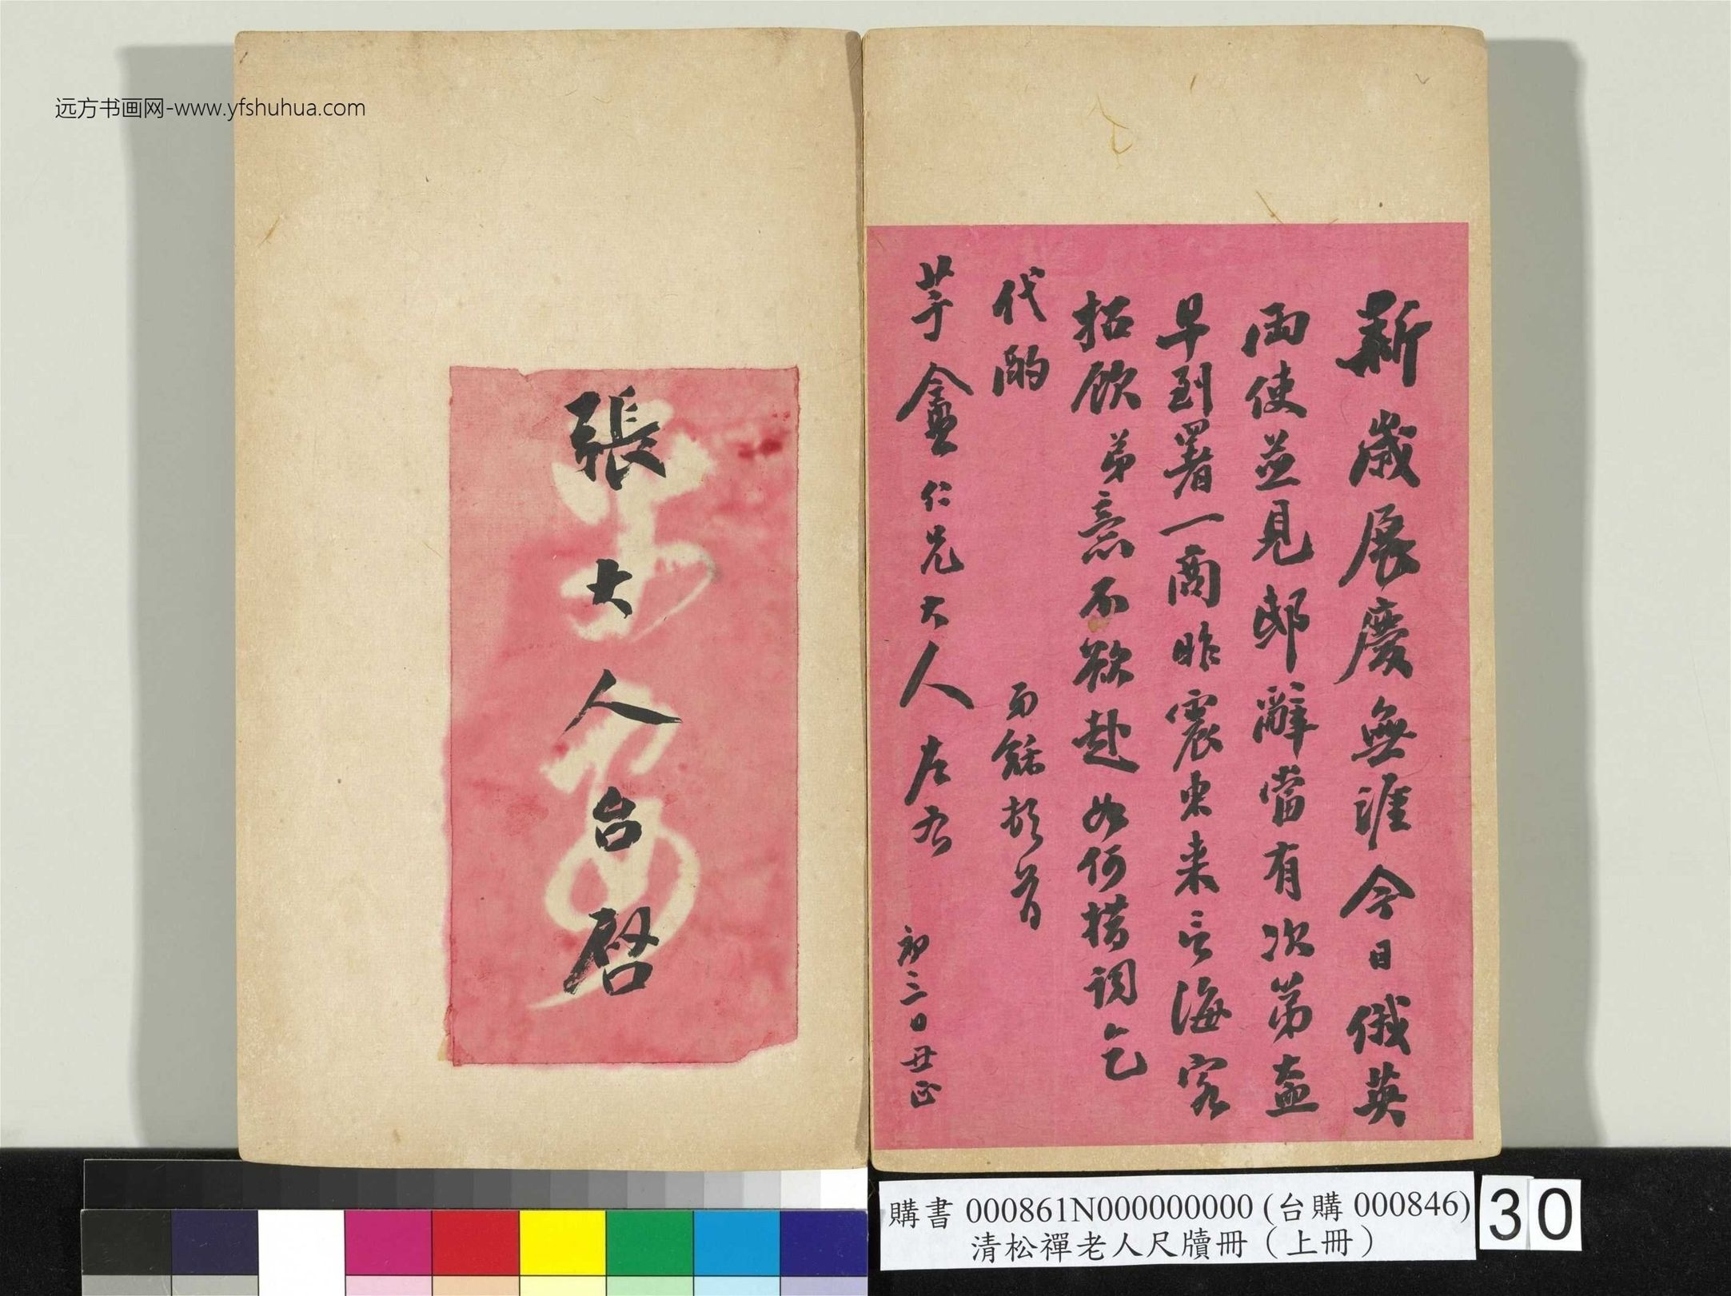 新歲展慶無涯今日俄英
兩使並見邸辭當有次第盍
早到署一商昨震東來言海客
招飲弟意不欲赴如何措詞乞
代酌
弟龢頓首
芋盦仁兄大人左右
初三日丑正
張大人台啓
远方书画网-www.yfshuhua.com
購書 000861N000000000 (台購 000846)
清松禪老人尺牘冊（上冊）
30